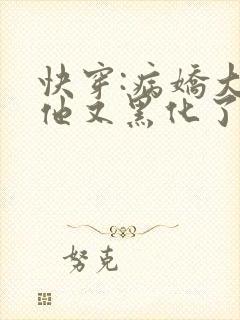 快穿:病娇大
他又黑化了
努克